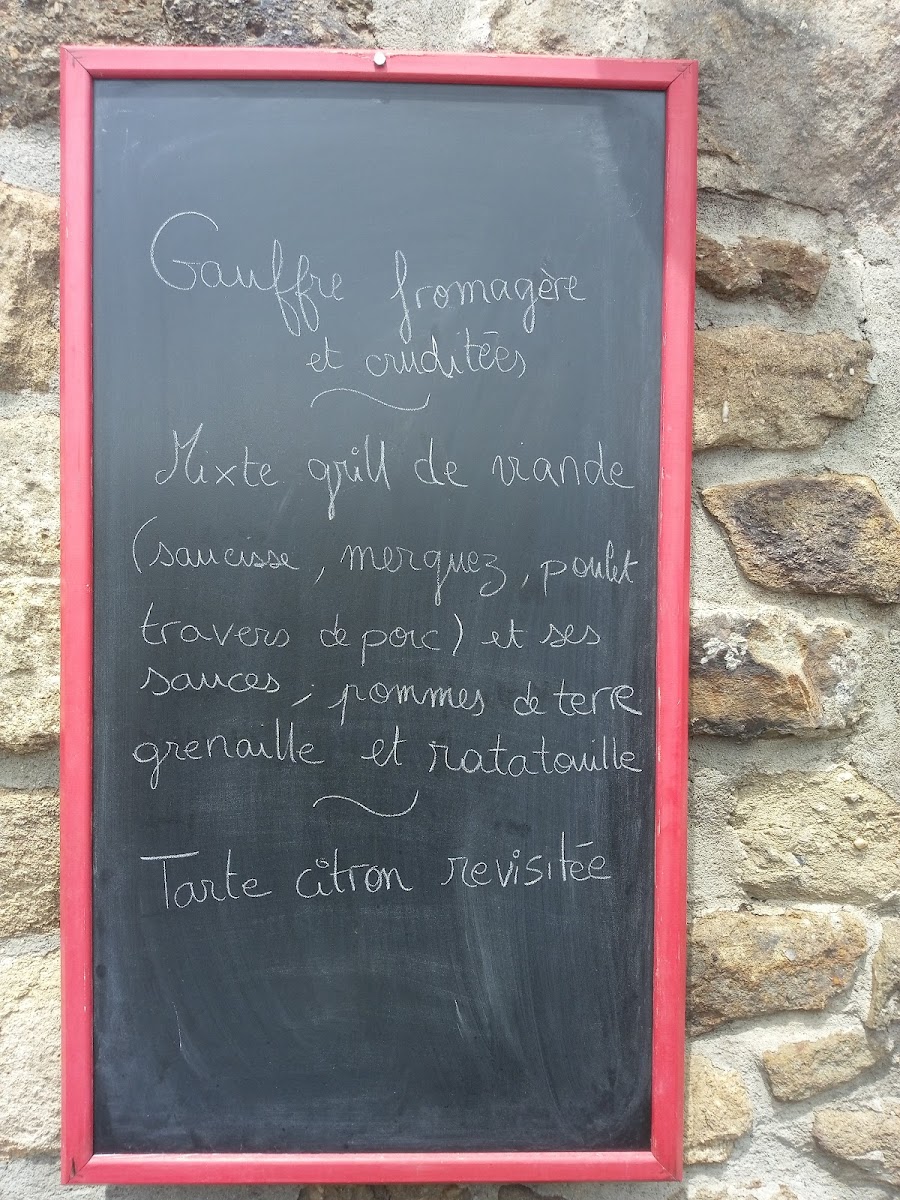 Gauffre fromagère
et cruditées
Mixte grill de viande
(saucisse, merguez, poulet
travers de porc) et ses
sauces, pommes de terre
grenaille et ratatouille
Tarte citron revisitée